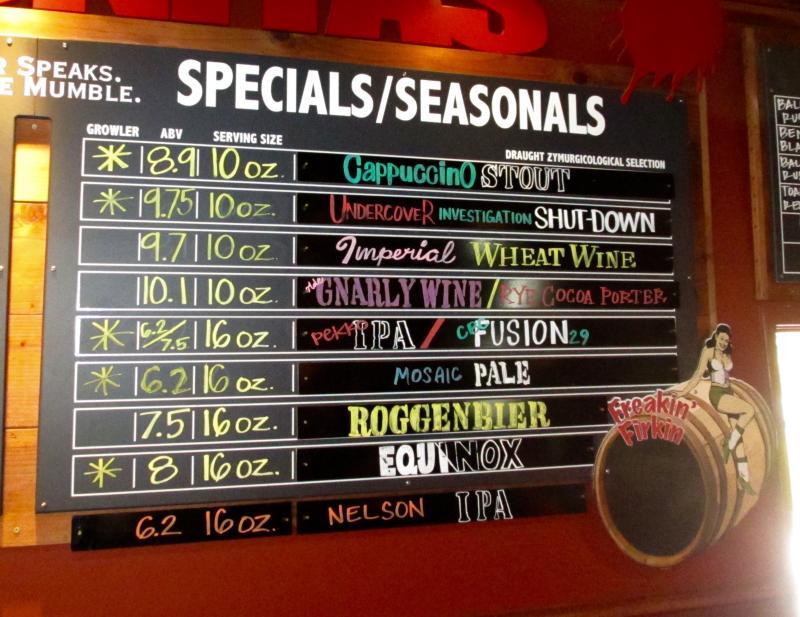 R SPEAKS.
E MUMBLE.
SPECIALS/SEASONALS
GROWLER ABV SERVING SIZE
DRAUGHT ZYMURGICOLOGICAL SELECTION
* 8.9 10 oz. Cappuccino STOUT
* 9.75 10 oz. UNDERCOVER INVESTIGATION SHUT-DOWN
9.7 10 oz. Imperial WHEAT WINE
10.1 10 oz. GNARLY WINE / RYE COCOA PORTER
* 6.2/7.5 16 oz. PEKKO IPA / FUSION 29
* 6.2 16 oz. MOSAIC PALE
7.5 16 oz. ROGGENBIER
* 8 16 oz. EQUINOX
6.2 16 oz. NELSON IPA
Freakin'
Firkin